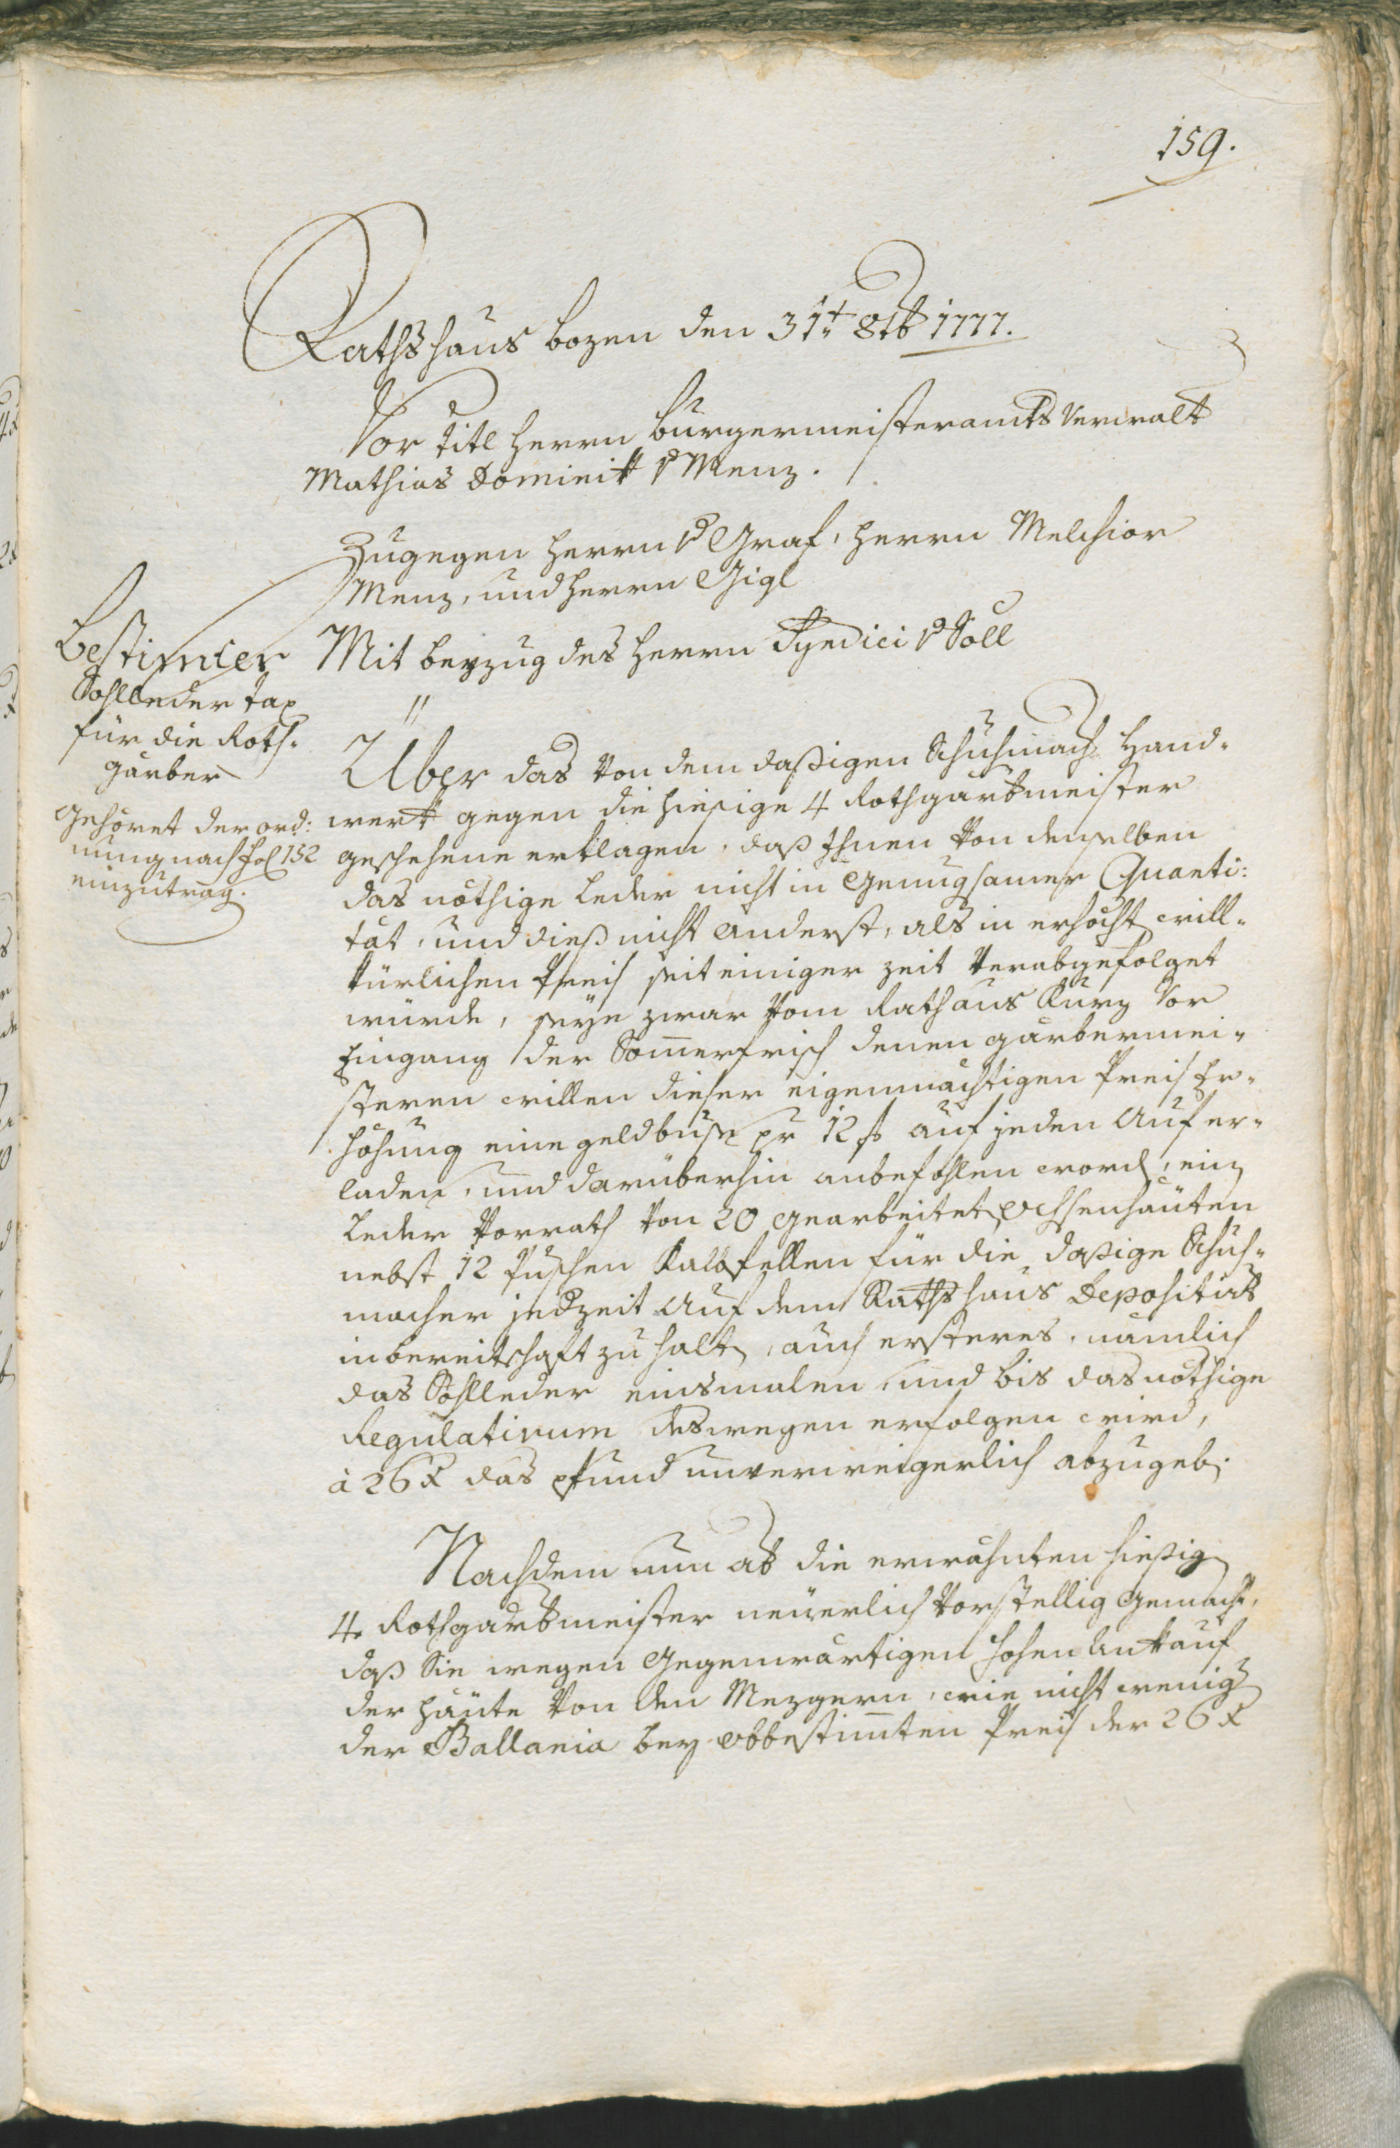 159.
Rathshaus bozen den 31t 8tb 1777.
Vor titl herrn burgermeisteramts Verwalt
Mathias Dominikk v Menz.
Zugegen herrn v Graf, herrn Melchior
Menz, und herrn Gigl
Mit beyzug des herrn Syndici v Söll
Bestimter
Sohlleder tax
für die Roth-
garber
Gehöret der ord:
nung nach fol 152
einzutrag.
Über das von dem daßigen Schuhmach Hand-
werk gegen die hiesige 4 Rothgarbmeister
geschehene erklagen, daß Ihnen von denselben
das nöthige Leder nicht in Genugsamer Quanti:
tät, und dieß nicht anderst, als in erhöcht will-
kürlichen Preis seit einiger zeit verabgefolget
würde, seye zwar vom Rathaus kurz vor
Eingang der Somerfrisch denen garbermei-
steren willen dieser eigenmächtigen Preis Er-
höhung eine geldbuß pr 12 f auf jeden Auf er-
laden, und darüberhin anbefohlen word, ein
Leder Vorrath von 20 gearbeitet ochsenhäuten
nebst 12 Puschen Kalbfellen für die daßige Schuh-
macher jedzeit auf dem Rathshaus Depositirt
in bereitschaft zu halt, auch ersteres, nämlich
das Sohlleder einsmalen, und bis das nöthige
Regulativum deswegen erfolgen wird,
à 26 x das pfund unverweigerlich abzugeb.
Nachdem nun ab die erwähnten hiesig
4 Rothgarbmeister neüerlich vorstellig gemacht,
daß Sie wegen Gegenwärtigen hohen Ankkauf
der häüte von den Mezgern, wie nicht wenig
der Ballania bey obbestimten Preis der 26 x